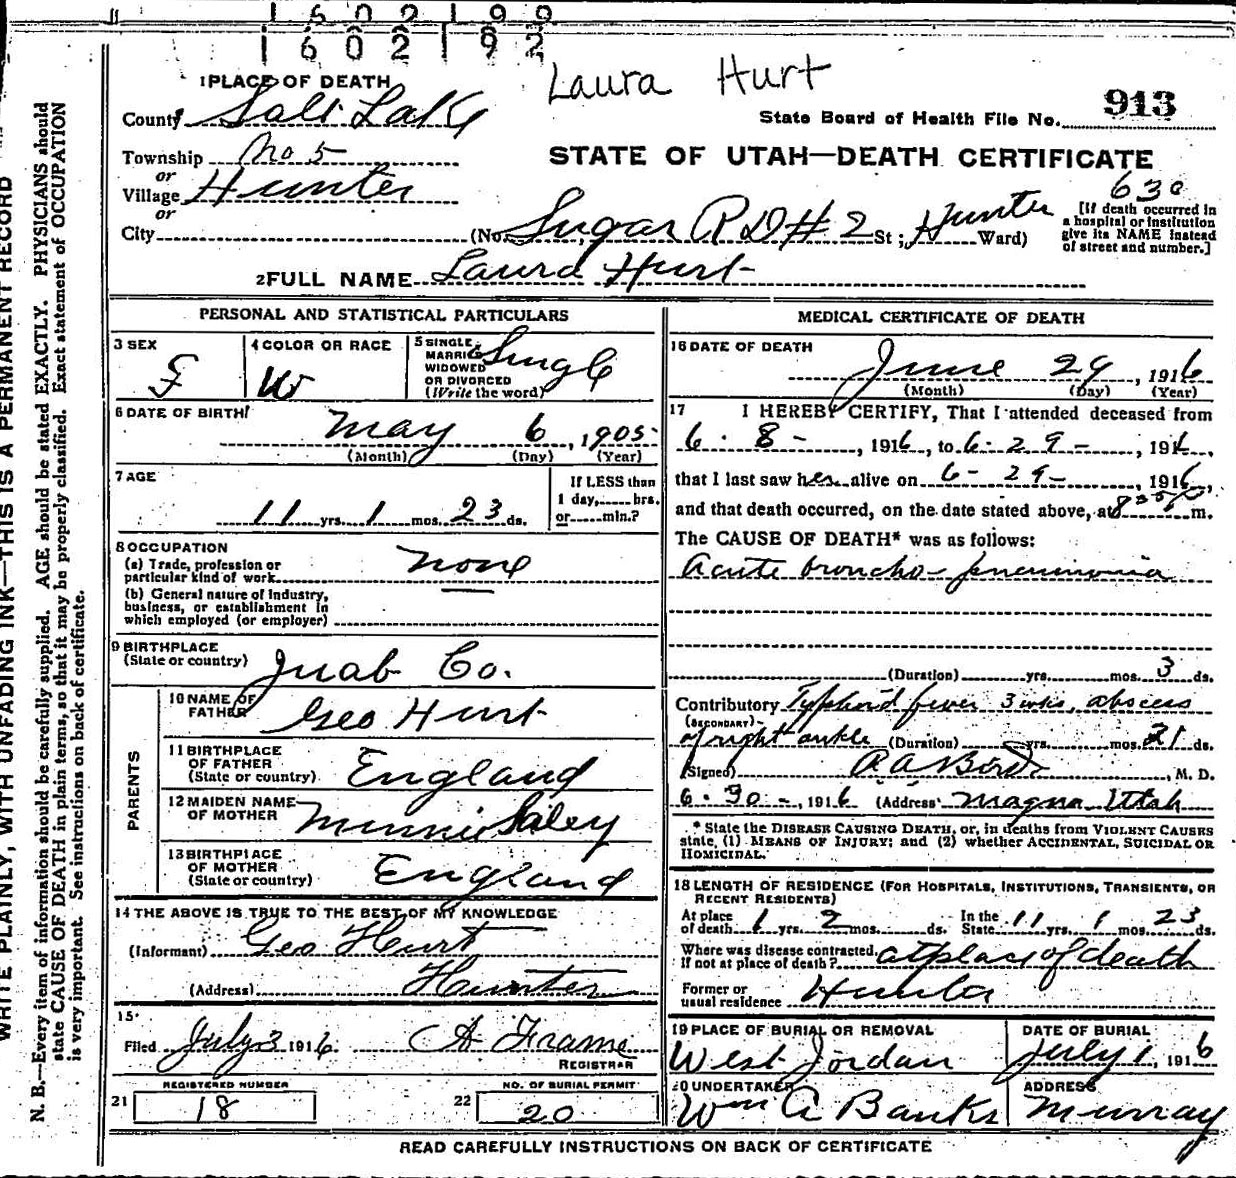 1 6 0 2 1 9 9
1 6 0 2 1 9 2
Laura Hurt
913
State Board of Health File No.
1 PLACE OF DEATH
County Salt Lake
Township No 5
or
Village Hunter
or
City
STATE OF UTAH—DEATH CERTIFICATE
630
(No. Sugar R D # 2 St; Hunter Ward)
[If death occurred in
a hospital or institution
give its NAME instead
of street and number.]
2 FULL NAME Laura Hurt
PERSONAL AND STATISTICAL PARTICULARS
3 SEX
F
4 COLOR OR RACE
W
5 SINGLE,
MARRIED
WIDOWED
OR DIVORCED
(Write the word)
Single
6 DATE OF BIRTH
May 6, 1905
(Month) (Day) (Year)
7 AGE
11 yrs. 1 mos. 23 ds.
If LESS than
1 day,.....hrs.
or.....min.?
8 OCCUPATION
(a) Trade, profession or
particular kind of work
none
(b) General nature of industry,
business, or establishment in
which employed (or employer)
9 BIRTHPLACE
(State or country) Juab Co.
PARENTS
10 NAME OF
FATHER Geo Hurt
11 BIRTHPLACE
OF FATHER
(State or country) England
12 MAIDEN NAME
OF MOTHER Minnie
13 BIRTHPLACE
OF MOTHER
(State or country) England
14 THE ABOVE IS TRUE TO THE BEST OF MY KNOWLEDGE
(Informant) Geo Hurt
(Address) Hunter
15
Filed July 3 1916. A. Frame
REGISTRAR
REGISTERED NUMBER
21 18
NO. OF BURIAL PERMIT
22 20
MEDICAL CERTIFICATE OF DEATH
16 DATE OF DEATH
June 29, 1916
(Month) (Day) (Year)
17 I HEREBY CERTIFY, That I attended deceased from
6-8-, 1916, to 6-29-, 1916,
that I last saw her alive on 6-29-, 1916,
and that death occurred, on the date stated above, at m.
The CAUSE OF DEATH* was as follows:
Acute broncho-pneumonia
(Duration) yrs. mos. 3 ds.
Contributory Typhoid fever 3 wks, abscess
(SECONDARY)
of right ankle (Duration) yrs. mos. 21 ds.
(Signed) , M. D.
6-30-, 1916 (Address) Magna Utah
* State the DISEASE CAUSING DEATH, or, in deaths from VIOLENT CAUSES
state, (1) MEANS OF INJURY; and (2) whether ACCIDENTAL, SUICIDAL OR
HOMICIDAL.
18 LENGTH OF RESIDENCE (FOR HOSPITALS, INSTITUTIONS, TRANSIENTS, OR
RECENT RESIDENTS)
At place
of death 1 yrs. 2 mos. ds.
In the
State 11 yrs. 1 mos. 23 ds.
Where was disease contracted
if not at place of death? at place of death
Former or
usual residence Hunter
19 PLACE OF BURIAL OR REMOVAL
West Jordan
DATE OF BURIAL
July 1, 1916
20 UNDERTAKER
Wm A Banks
ADDRESS
Murray
READ CAREFULLY INSTRUCTIONS ON BACK OF CERTIFICATE
WRITE PLAINLY, WITH UNFADING INK—THIS IS A PERMANENT RECORD
N. B.—Every item of information should be carefully supplied. AGE should be stated EXACTLY. PHYSICIANS should
state CAUSE OF DEATH in plain terms, so that it may be properly classified. Exact statement of OCCUPATION
is very important. See instructions on back of certificate.